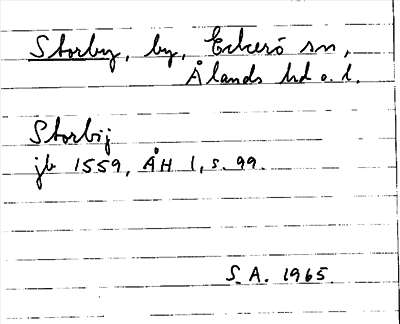 Storby, by, Eckerö sn,
Ålands hd o. l.
Storbij
jb 1559, ÅH 1, s. 99.
S A. 1965.